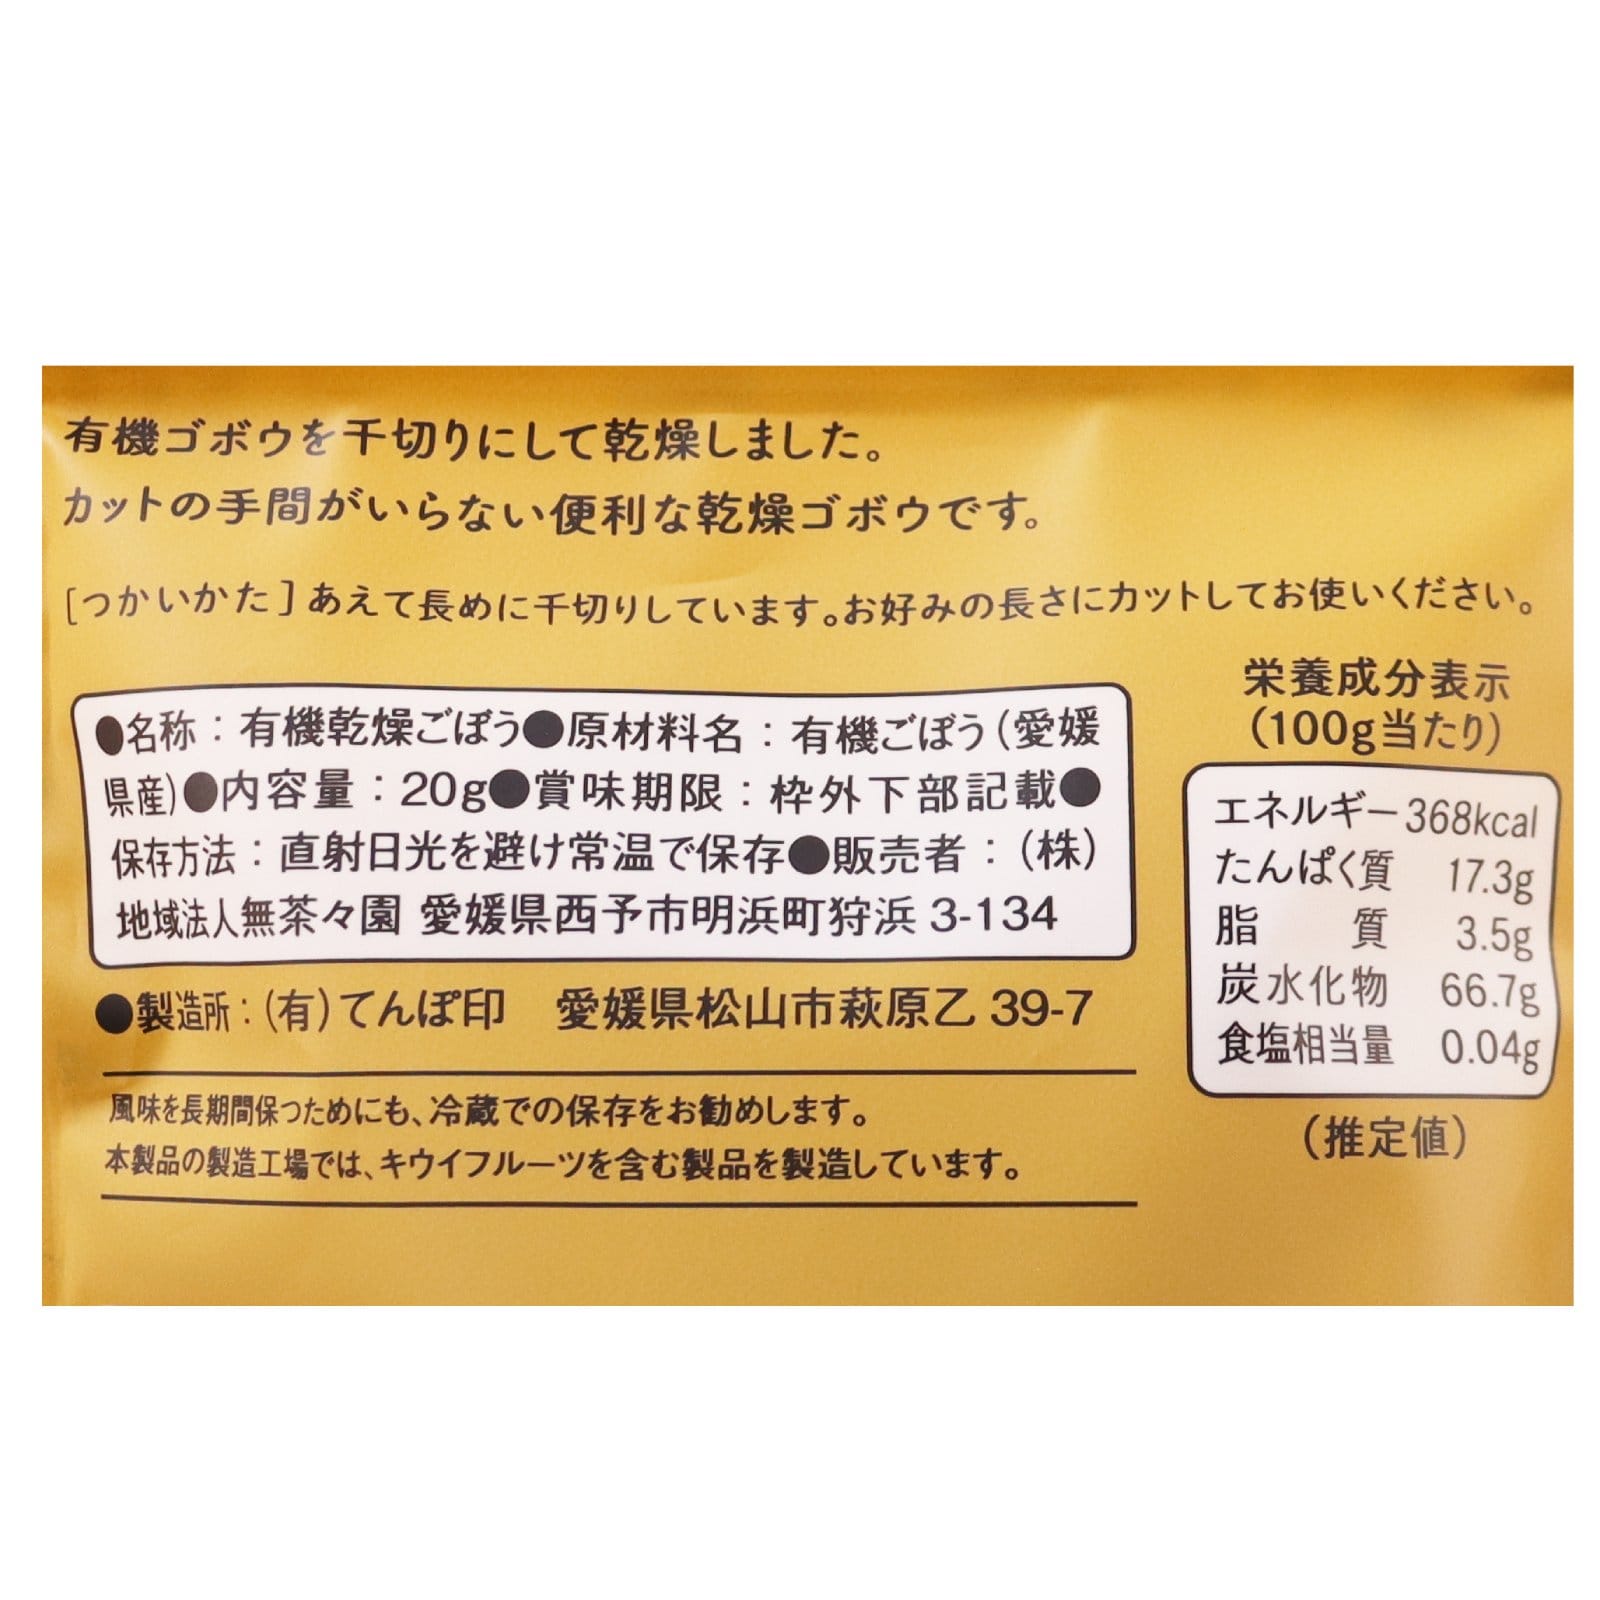 有機ゴボウを千切りにして乾燥しました。
カットの手間がいらない便利な乾燥ゴボウです。
[つかいかた]あえて長めに千切りしています。お好みの長さにカットしてお使いください。
●名称：有機乾燥ごぼう●原材料名：有機ごぼう(愛媛
県産)●内容量：20g●賞味期限：枠外下部記載●
保存方法：直射日光を避け常温で保存●販売者：(株)
地域法人無茶々園 愛媛県西予市明浜町狩浜 3-134
●製造所：(有)てんぽ印　愛媛県松山市萩原乙 39-7
風味を長期間保つためにも、冷蔵での保存をお勧めします。
本製品の製造工場では、キウイフルーツを含む製品を製造しています。
栄養成分表示
(100g当たり)
エネルギー 368kcal
たんぱく質 17.3g
脂質 3.5g
炭水化物 66.7g
食塩相当量 0.04g
(推定値)